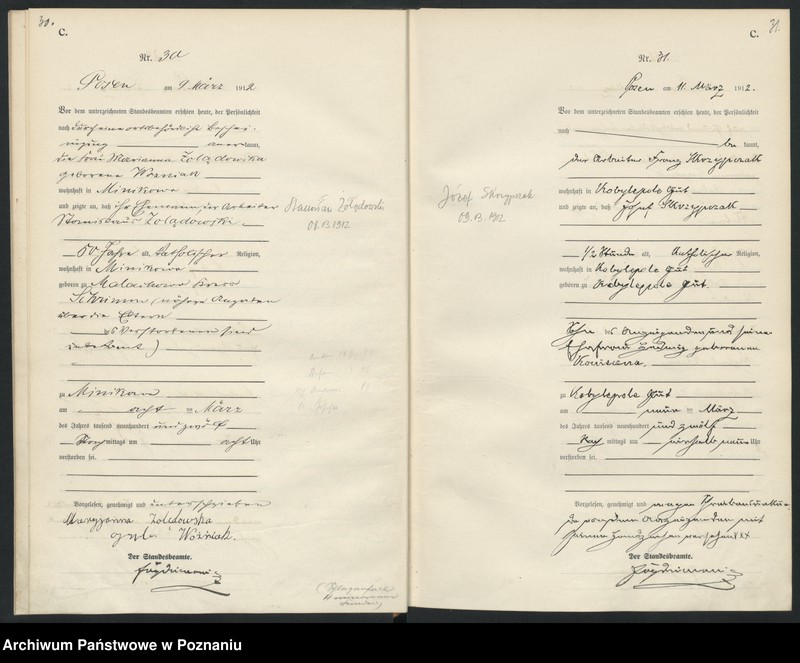 30.
C.
Nr. 30
Posen am 9. März 1912
Vor dem unterzeichneten Standesbeamten erschien heute, der Persönlichkeit
nach durch eine ortsbehördliche Beschei-
nigung anerkannt,
die Frau Marianna Zoladowska
geborene Wozniak
wohnhaft in Minikowo
und zeigte an, daß ihr Ehemann, der Arbeiter
Stanislaus Zoladowski
50 Jahre alt, katholischer Religion,
wohnhaft in Minikowo
geboren zu Kreis
Schrimm (nähere Angaben
über die Eltern
des Verstorbenen sind
unbekannt)
zu Minikowo
am acht ten März
des Jahres tausend neunhundert und zwölf
Vormittags um acht Uhr
verstorben sei.
Vorgelesen, genehmigt und unterschrieben
Maryjanna Zoladowska
Woźniak.
Der Standesbeamte.
Stanisław Żołądowski
08.03.1912
31.
C.
Nr. 31.
Posen am 11. März 1912.
Vor dem unterzeichneten Standesbeamten erschien heute, der Persönlichkeit
nach bekannt,
der Arbeiter Franz Skrzypczak
wohnhaft in Kobylepole Gut
und zeigte an, daß Josef Skrzypczak
1/2 Stunde alt, katholischer Religion,
wohnhaft in Kobylepole Gut
geboren zu Kobylepole Gut
Sohn des Anzeigenden und seiner
Ehefrau Hedwig geborenen
zu Kobylepole Gut
am neun ten März
des Jahres tausend neunhundert und zwölf
Nachmittags um neun Uhr
verstorben sei.
Vorgelesen, genehmigt und wegen
von dem Anzeigenden mit
seinem Handzeichen versehen
Der Standesbeamte.
Józef Skrzypczak
09.03.1912
Archiwum Państwowe w Poznaniu